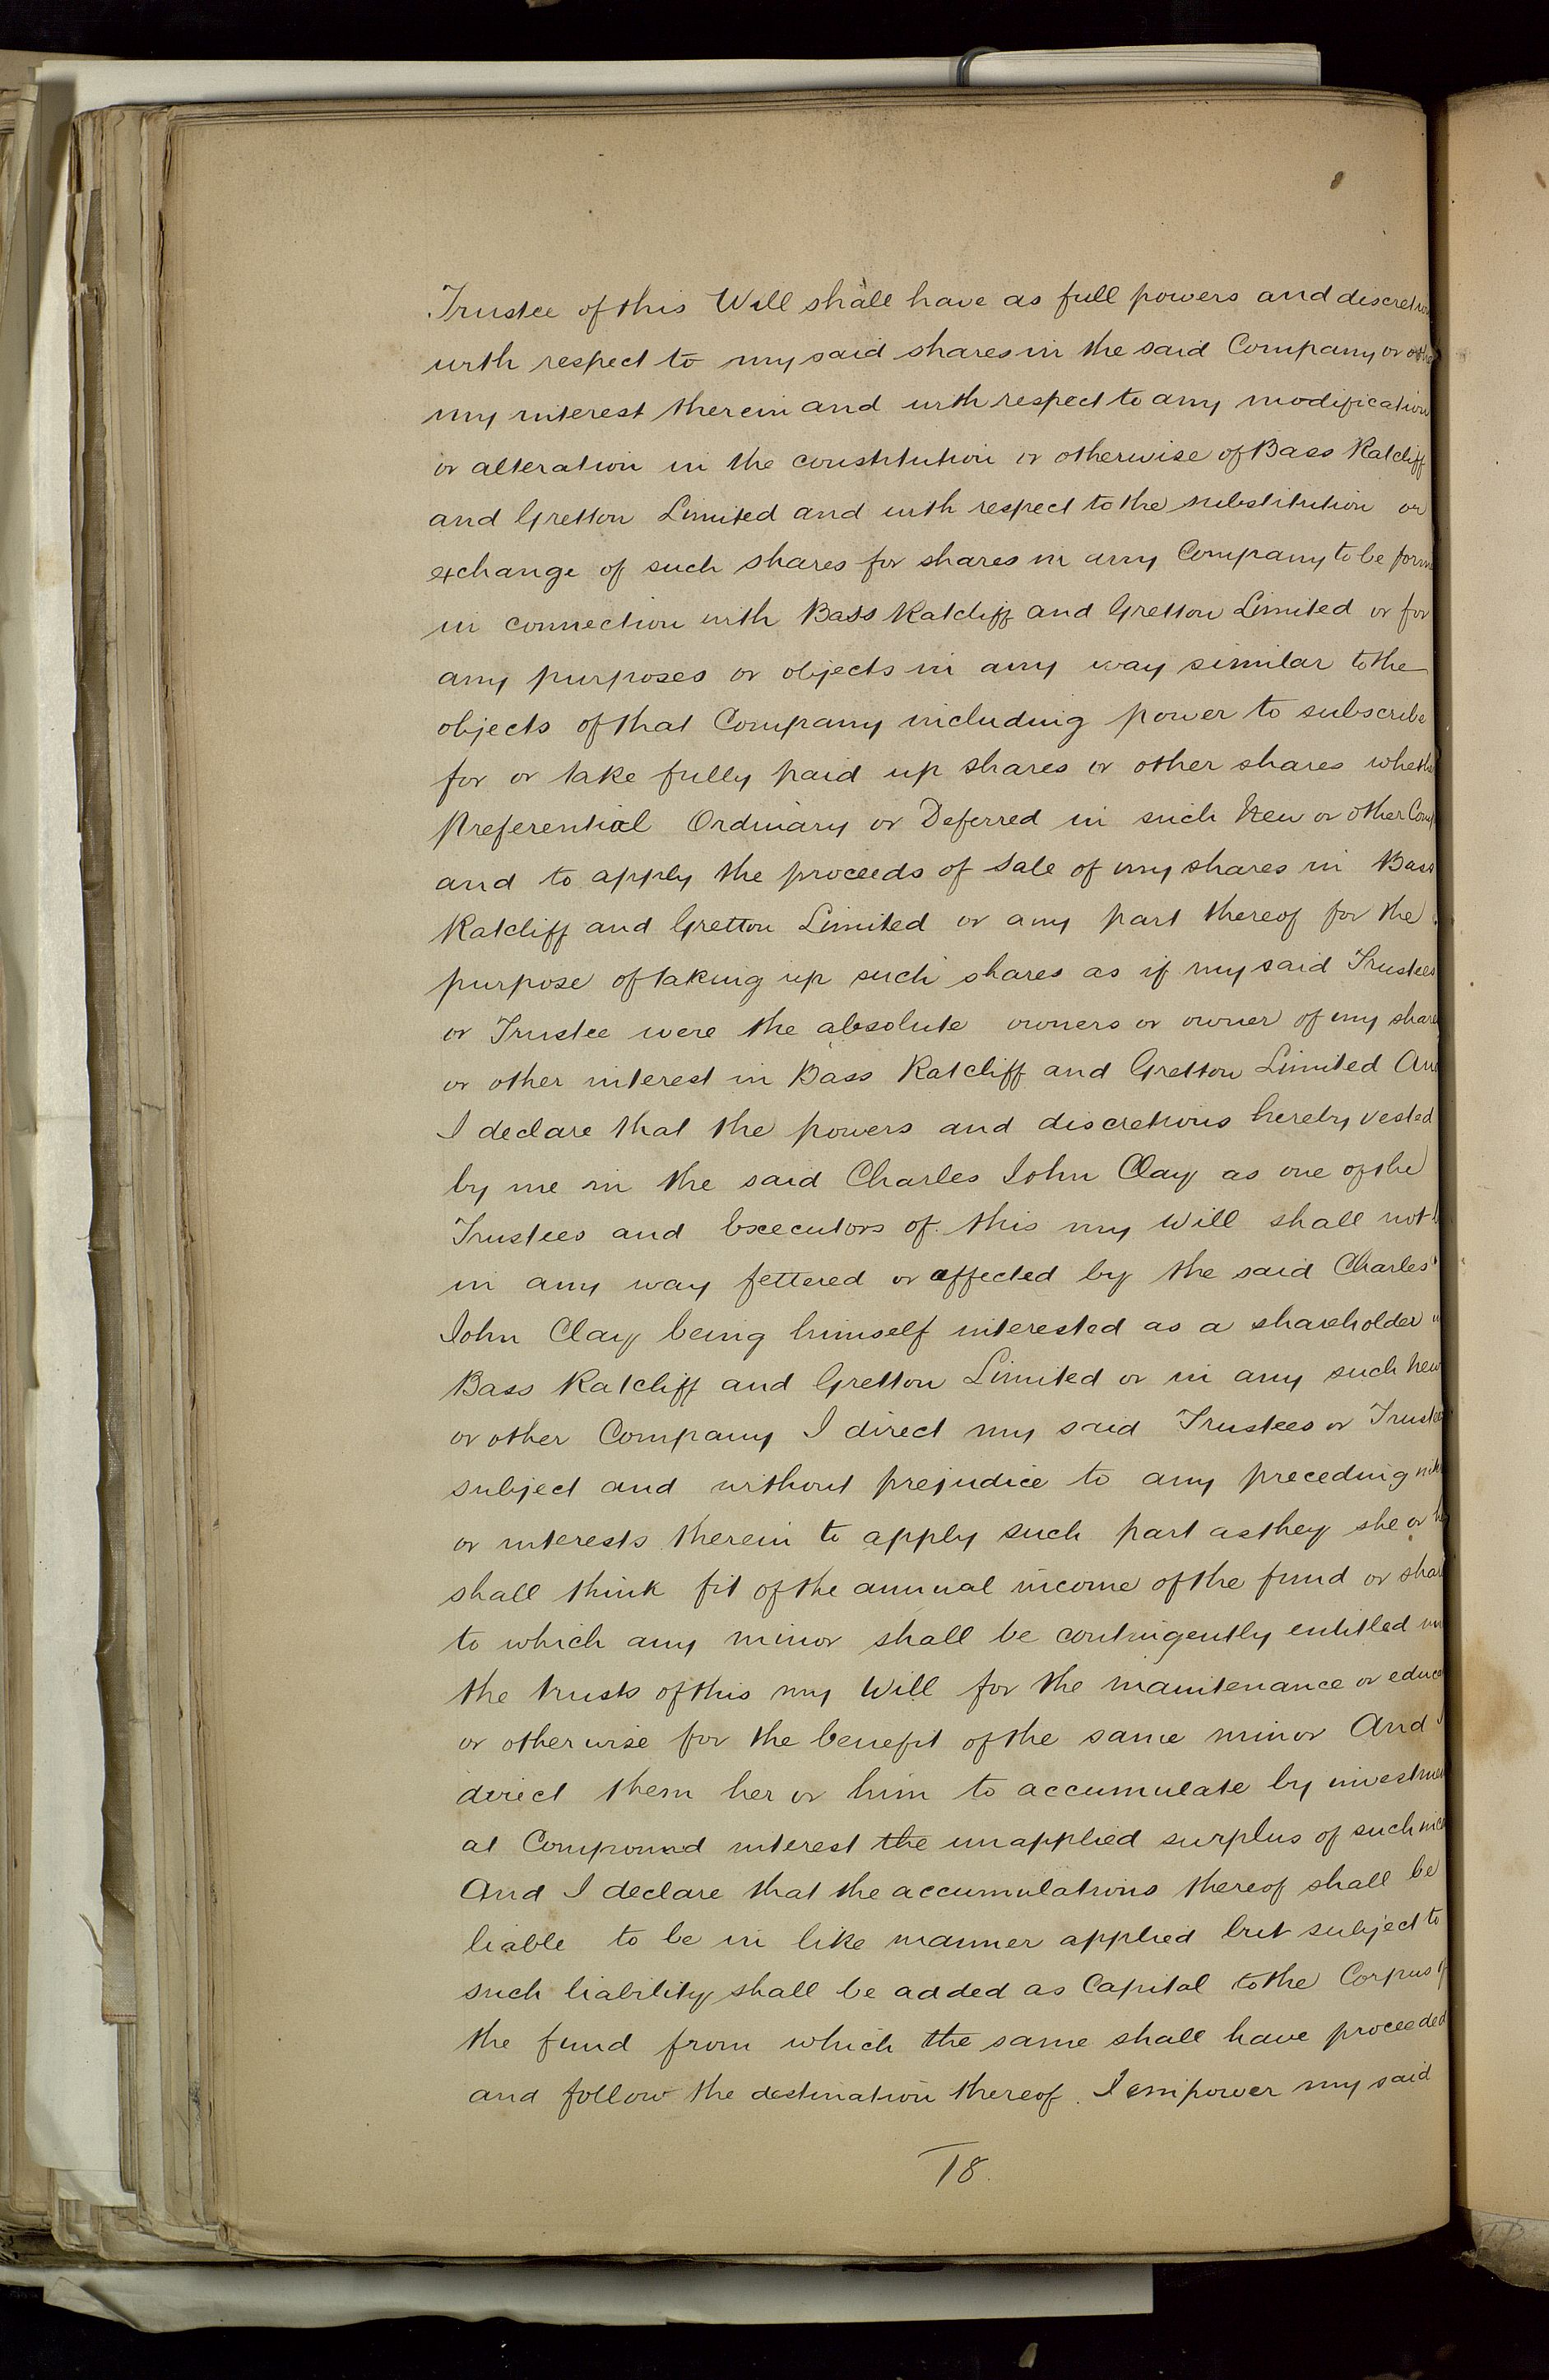 Trustee of this Will shall have as full powers and discretion
with respect to my said shares in the said Company or other
my interest therein and with respect to any modification
or alteration in the constitution or otherwise of Bass Ratcliff
and Gretton Limited and with respect to the substitution or
exchange of such shares for shares in any Company to be form
in connection with Bass Ratcliff and Gretton Limited or for
any purposes or objects in any way similar to the
objects of that Company including power to subscribe
for or take fully paid up shares or other shares whether
Preferential Ordinary or Deferred in such New or other Comp
and to apply the proceeds of sale of my shares in Bass
Ratcliff and Gretton Limited or any part thereof for the
purpose of taking up such shares as if my said Trustees
or Trustee were the absolute owners or owner of my share
or other interest in Bass Ratcliff and Gretton Limited And
I declare that the powers and discretions hereby vested
by me in the said Charles John Clay as one of the
Trustees and Executors of this my Will shall not b
in any way fettered or affected by the said Charles
John Clay being himself interested as a shareholder
Bass Ratcliff and Gretton Limited or in any such New
or other Company I direct my said Trustees or Trustee
subject and without prejudice to any preceding
or interests therein to apply such part as they she or he
shall think fit of the annual income of the fund or shar
to which any minor shall be contingently entitled un
the trusts of this my Will for the maintenance or educa
or otherwise for the benefit of the same minor And I
direct them her or him to accumulate by investmen
at Compound interest the unapplied surplus of such inco
And I declare that the accumulations thereof shall be
liable to be in like manner applied but subject to
such liability shall be added as Capital to the Corpus of
the fund from which the same shall have proceeded
and follow the destination thereof. I empower my said
18.